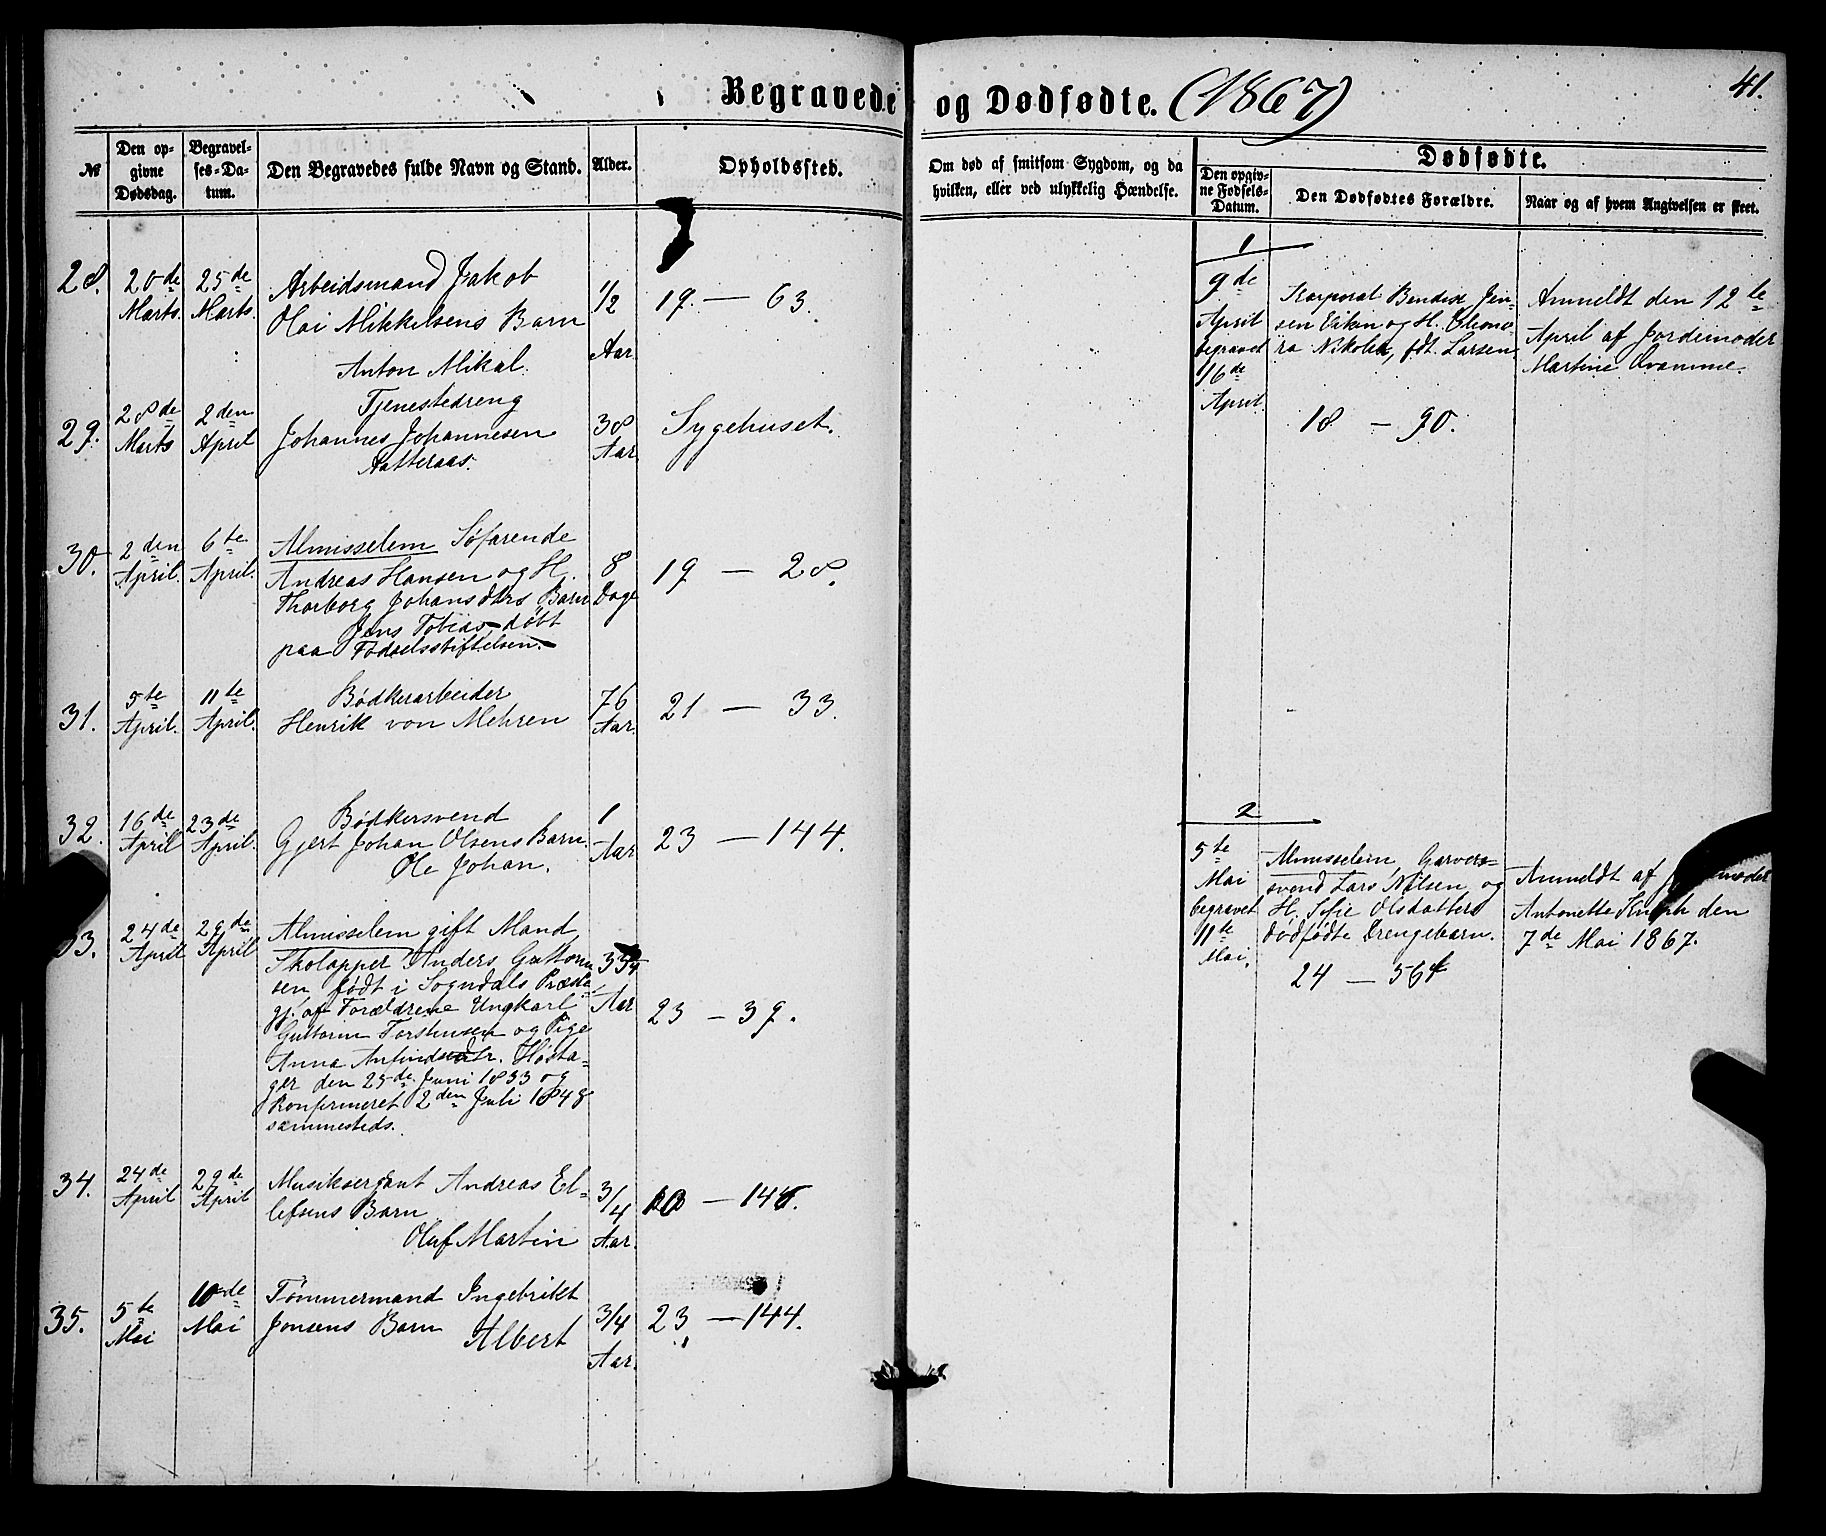 Begravede og Dødfødte. (1867)
41.
№
Den op-
givne
Dødsdag.
Begravel-
ses-Da-
tum.
Den Begravedes fulde Navn og Stand.
Alder.
Opholdssted.
Om død af smitsom Sygdom, og da
hvilken, eller ved ulykkelig Hændelse.
Dødfødte.
Den opgiv-
ne Fødsels-
Datum.
Den Dødfødtes Forældre.
Naar og af hvem Angivelsen er skeet.
28.
20de
Marts.
25de
Marts.
Arbeidsmand Jakob
Olai Mikkelsens Barn
Anton Mikal.
1/2
Aar.
19. — 63.
29.
28de
Marts
2den
April
Tjenestedreng
Johannes Johannesen
Aatteraas.
38
Aar.
Sygehuset.
30.
2den
April.
6te
April.
Almisselem Søfarende
Andreas Hansen og H.
Thorborg Johansdtrs Barn
Jens Tobias, døbt
paa Fødselsstiftelsen.
8
Dage
19 — 28.
31.
5te
April.
11te
April.
Bødkerarbeider
Henrik von Mehren
76
Aar.
21 — 33.
32.
16de
April
23de
April.
Bødkersvend
Gjert Johan Olsens Barn
Ole Johan.
1
Aar.
23 — 144.
33.
24de
April
29de
April
Almisselem gift Mand,
Skolapper Anders Guttorm-
sen født i Sogndals Præste-
gj. af Forældrene Ungkarl
Guttorm Torstensen og Pige
Anna Anfindsdtr.
den 25de Juni 1833 og
konfirmeret 2den Juli 1848
sammesteds.
Aar
23 — 39.
34.
24de
April
29de
April
Musiksergant Andreas El-
lefsens Barn
Oluf Martin
3/4
Aar.
35.
5te
Mai
10de
Mai
Tømmermand Ingebrikt
Jonsens Barn
Albert
3/4
Aar.
23 — 144.
1
9de
April
begravet
16de
April.
Korporal Bendix Jen-
sen Eiken og H. Eleono-
ra Nikolea, fdt. Larsen
18 — 90.
Anmeldt den 12te
April af Jordemoder
Martine Kvamme.
2
5te
Mai
begravet
11te
Mai.
Almisselem, Garver-
svend Lars Nilsen og
H. Sofie Olsdatters
dødfødte Drengebarn.
24 —
Anmeldt af
Antonette den
7de Mai 1867.